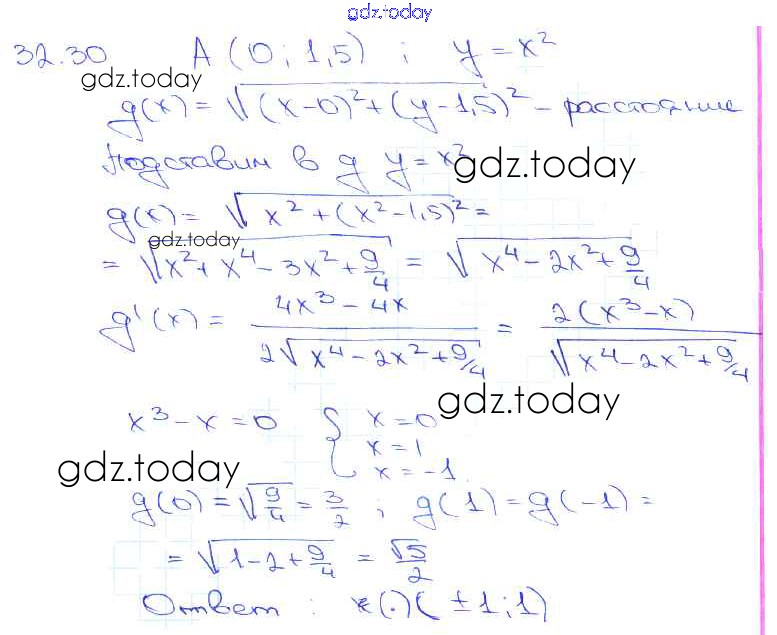 gdz.today
32.30 A (0; 1,5) ; y = x²
gdz.today
g(x) = √((x-0)² + (y-1,5)²) – расстояние
Подставим в g y = x²
gdz.today
g(x) = √(x² + (x² - 1,5)²) =
gdz.today
= √(x² + x⁴ - 3x² + 9/4) = √(x⁴ - 2x² + 9/4)
g'(x) = (4x³ - 4x)/(2√(x⁴ - 2x² + 9/4)) = 2(x³ - x)/√(x⁴ - 2x² + 9/4)
gdz.today
x³ - x = 0 { x = 0
x = 1
x = -1
gdz.today
g(0) = √(9/4) = 3/2 ; g(1) = g(-1) =
= √(1 - 2 + 9/4) = √5/2
Ответ : (·) (±1; 1)